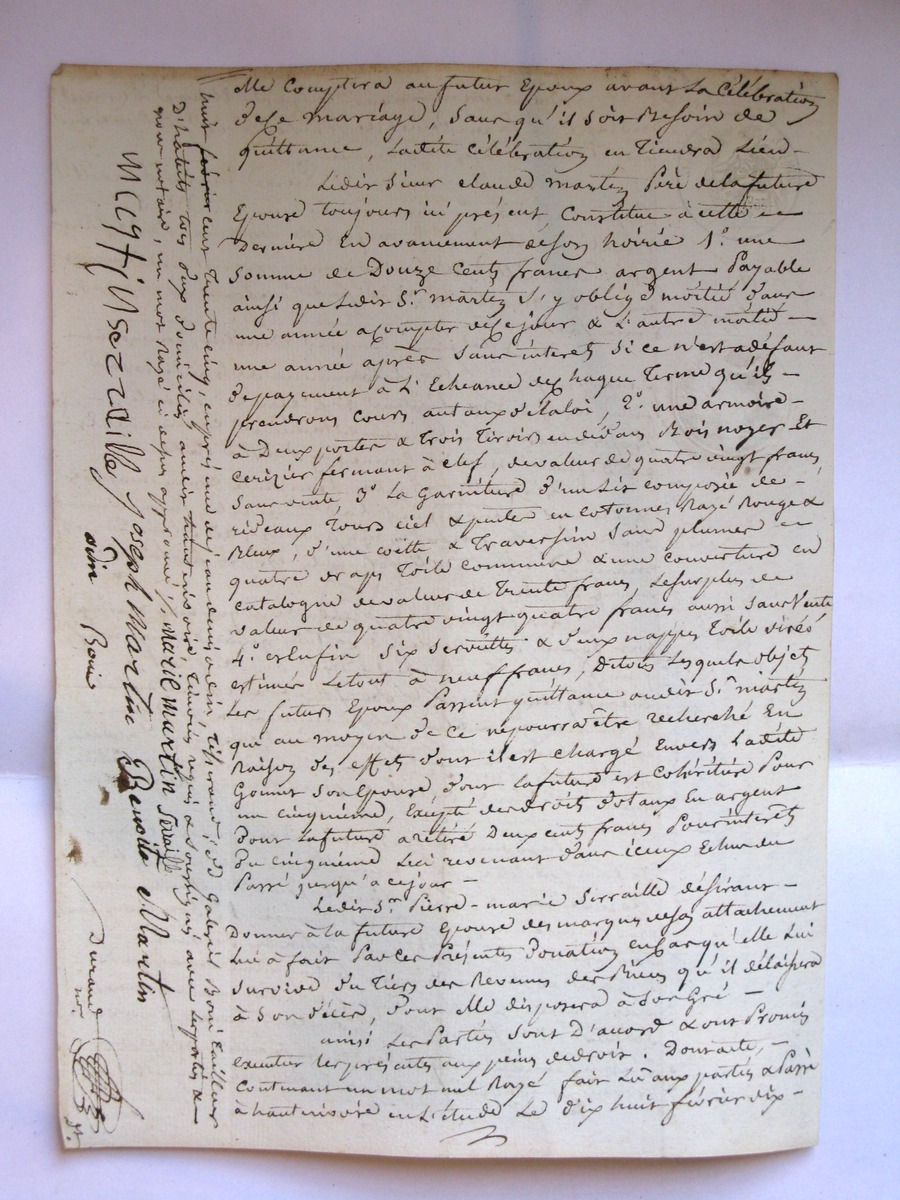 elle Comptera au futur Epoux avant La Célébration
dece mariage, sans qu'il soit Besoin de
quittance, Ladite Célébration en Tiendra Lieu –
Ledit Sieur claude martin Père dela future
Epouse toujours ici présent, Constitue à cette
Dernière En avancement deson hoirie 1.º une
Somme de Douze Cents francs argent Payable
ainsi que Ledit S.r martin s'y oblige moitié dans
une année acompter decejour & L'autre moitié –
une année après Sans interets Si ce n'est adéfaut
depayement à L'Echeance dechaque Terme qu'ils –
prendrons Cours autaux dela loi, 2.º une armoire –
à Deux portes & Trois Tiroirs endedans Bois noyer Et
Cerizier fermant à clef, devaleur de quatre vingt francs
Sans vente, 3.º La Garniture d'un Lit composée de –
rideaux Tours ciel & pentes en cotonnes Rayé Rouge &
Bleux, d'une coitte & Traversin Sans plumes
quatre draps Toile Commune & une couverture en
Catalogne devaleur de Trente francs Lesurplus de
valeur de quatre vingt quatre francs aussi Sans Vente
4.º et Enfin Six Serviettes & deux nappes Toile
estimés Letout à neuf francs, detous Lesquels objets
Les futurs Epoux Passent quittance audit S.r martin
qui au moyen de Ce nepourra être recherché En
Raison des effets dont il est Chargé Envers Ladite
Son Epouse, dont Lafuture est Cohéritière Pour
un cinquième, Excepté des droits dotaux En argent
Dont Lafuture a retiré Deux cents francs Pour interets
Du cinquième Lui revenant dans iceux Echus du
Passé jusqu'a cejour –
Ledit S.r Pierre-marie Serraille désirant –
Donner à La future Epouse des marques deson attachement
Lui a fait Par Ces Présentes Donation encas qu'elle Lui
Survive du Tiers des Revenus des Biens qu'il délaissera
à Son décès, dont elle disposera à Son Gré –
ainsi Les Parties Sont D'accord & ont Promis
executer lesprésentes aux peines dedroit. Dont acte, –
Contenant un mot nul Rayé fait Lu aux parties & Passé
à hauterivoire en L'étude Le dix huit février dix –
huit cent Trente cinq, en présence de jean denis odin, Tisserand, & Gabriel Boin Tailleur
D'habits tous deux domiciliés audit hauterivoire, Témoins requis & Soussignés avec lesparties &
nous notaire, un mot rayé ci dessus approuvé /. marie martin Serraille
Joseph Martin Benoite Martin
odin Boin
Durand
n.re